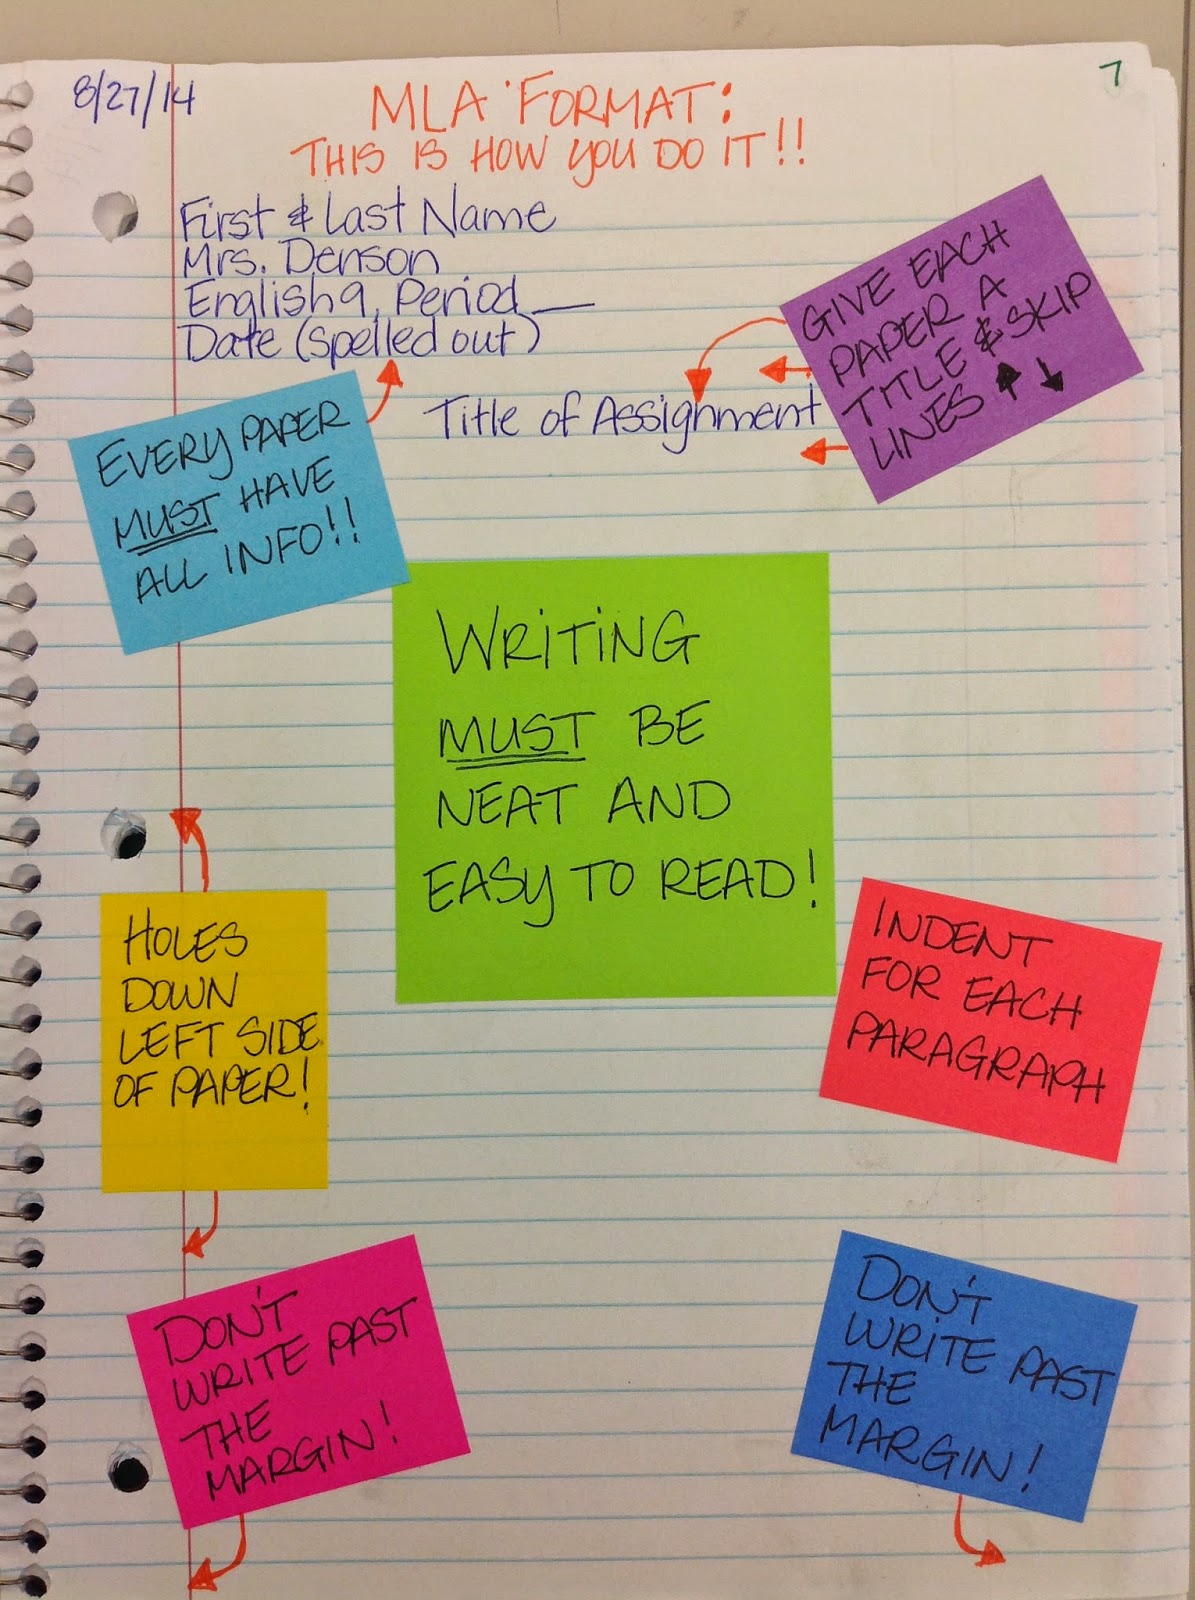 8/27/14
7
MLA FORMAT:
THIS IS HOW YOU DO IT!!
First & Last Name
Mrs. Denson
English 9, Period __
Date (spelled out)
GIVE EACH
PAPER A
TITLE & SKIP
LINES ↑ ↓
Title of Assignment
EVERY PAPER
MUST HAVE
ALL INFO!!
WRITING
MUST BE
NEAT AND
EASY TO READ!
HOLES
DOWN
LEFT SIDE
OF PAPER!
INDENT
FOR EACH
PARAGRAPH
DON'T
WRITE PAST
THE
MARGIN!
DON'T
WRITE PAST
THE
MARGIN!